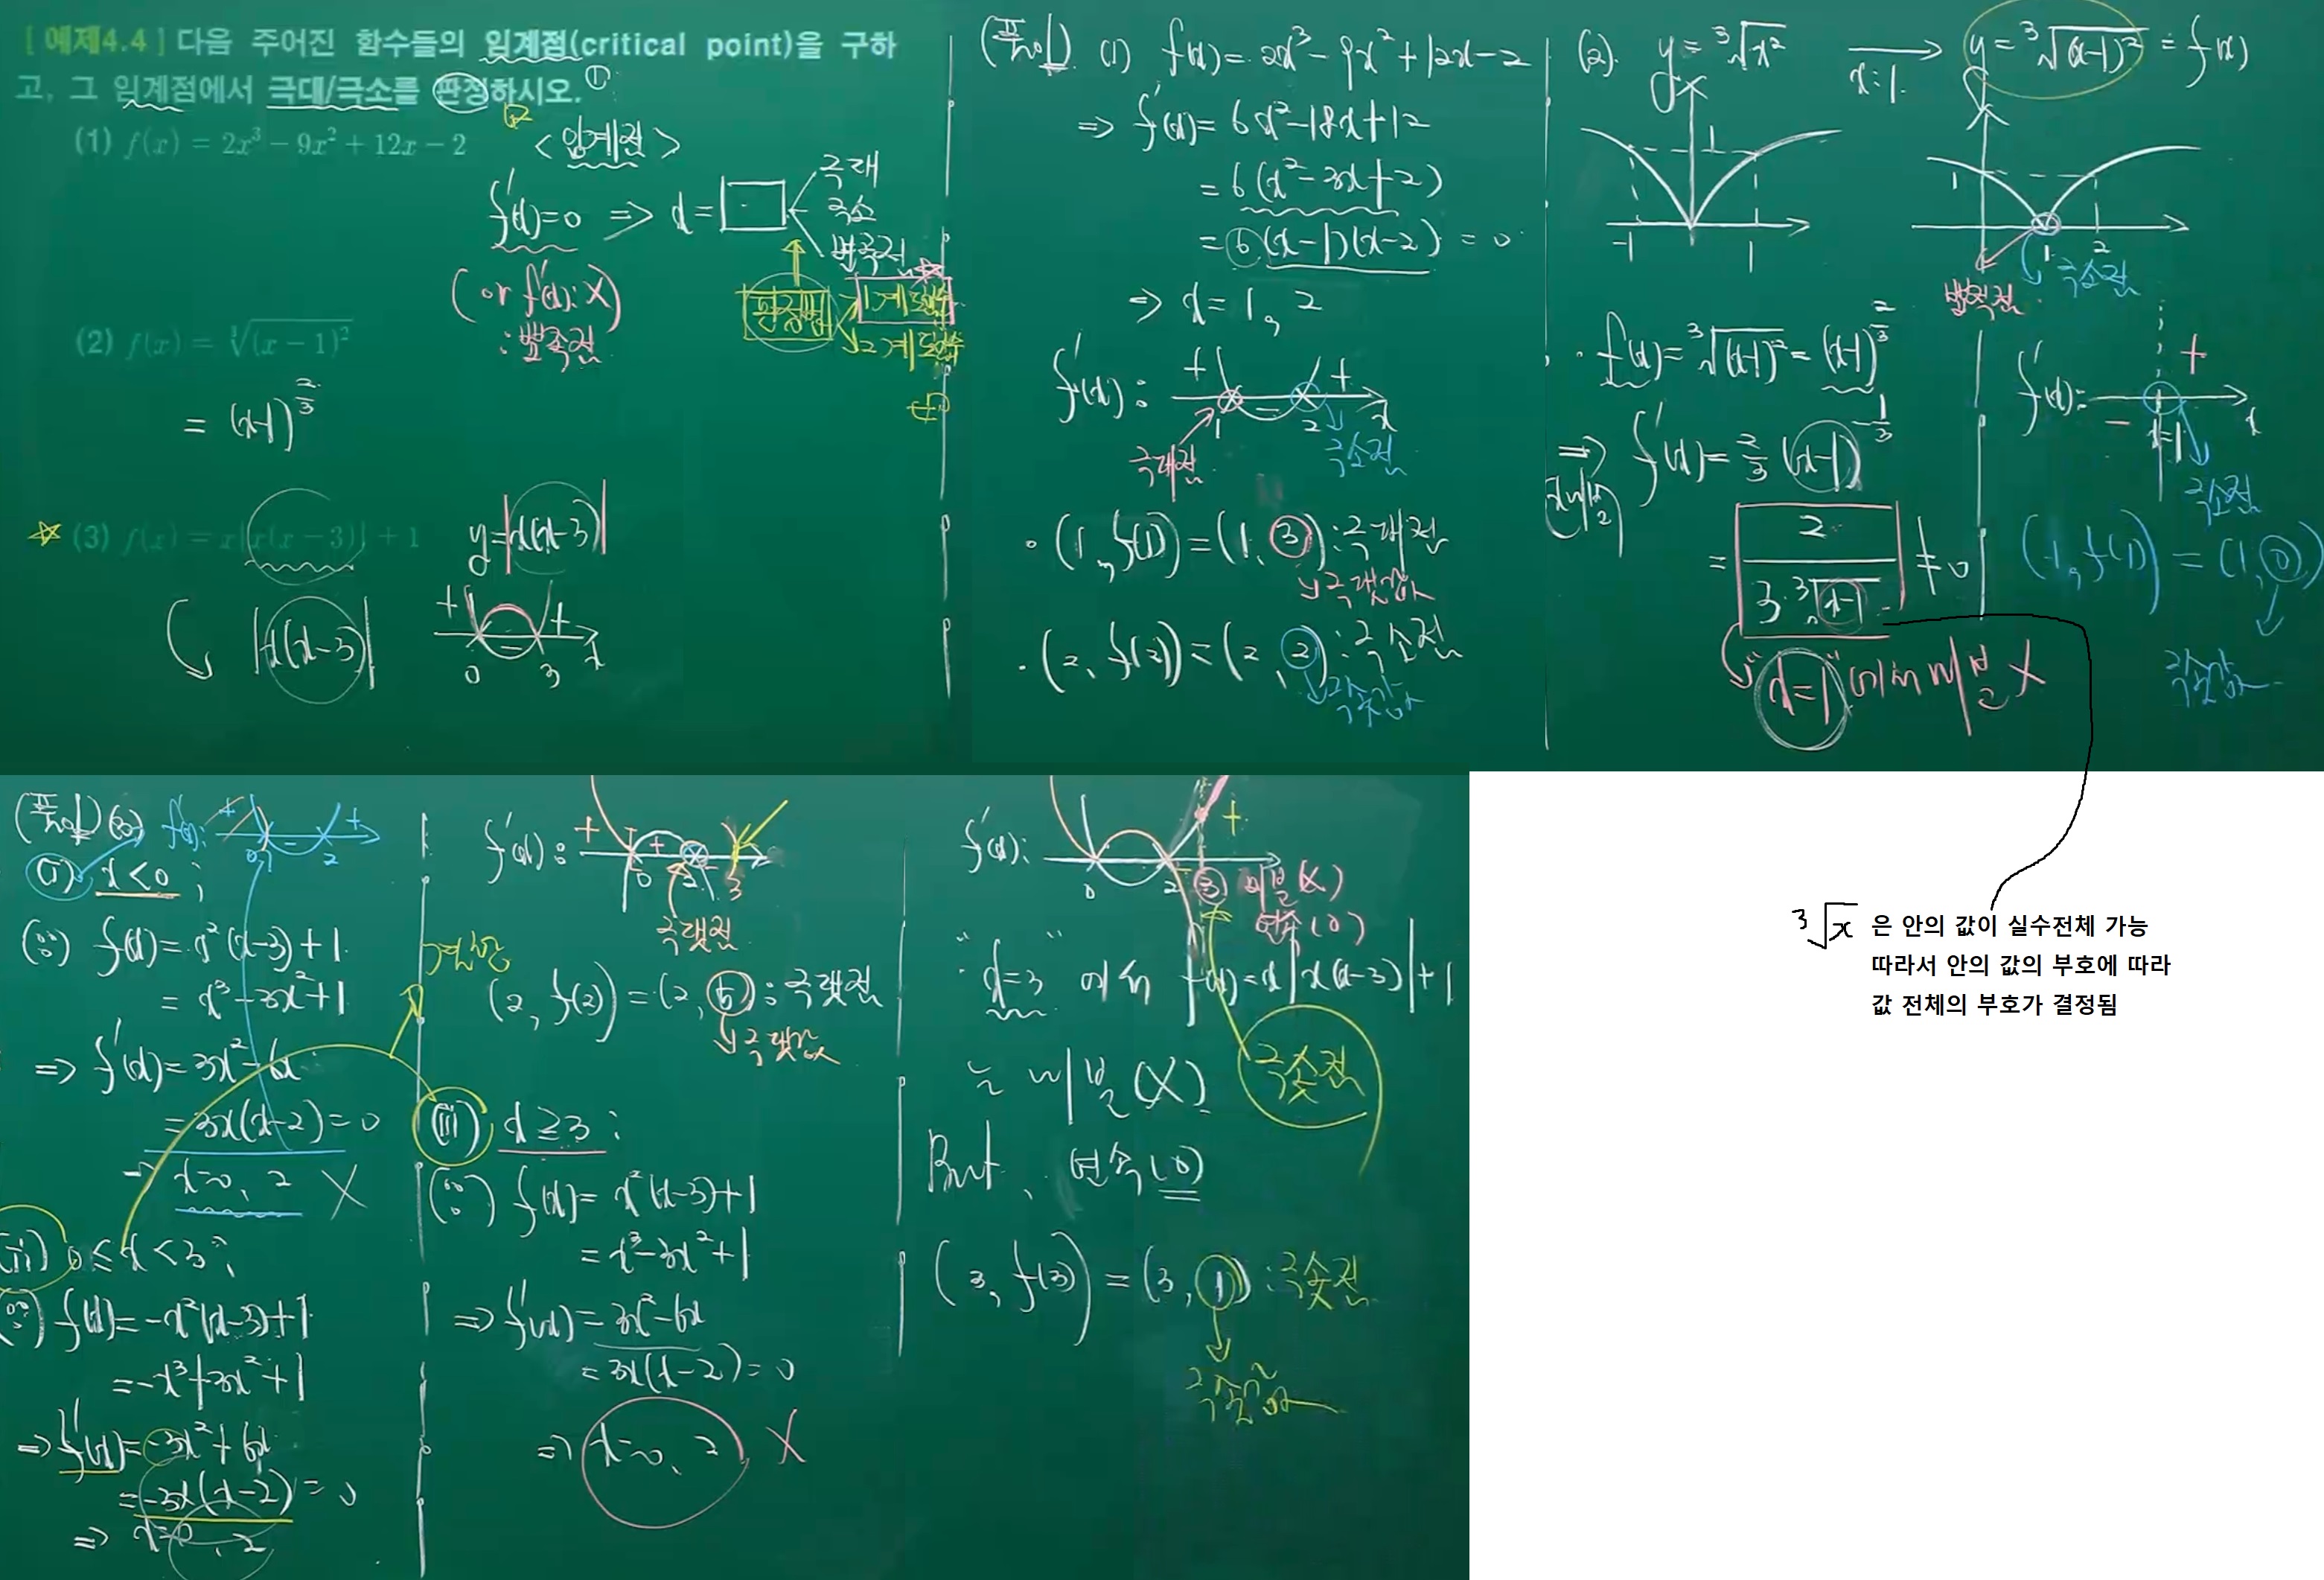 [ 예제4.4 ] 다음 주어진 함수들의 임계점(critical point)을 구하
고, 그 임계점에서 극대/극소를 판정하시오. ①
(1) f(x) = 2x³ − 9x² + 12x − 2
<임계점>
f'(x)=0 ⇒ x= □
극대
극소
변곡점
(or f'(x): X)
: 뾰족점
판정법
1계도함수
2계도함수
(2) f(x) = ∛(x − 1)²
= (x-1)^(2/3)
☆ (3) f(x) = x|x(x − 3)| + 1
y=|x(x-3)|
|x(x-3)|
+ − +
0 3 x
(풀이) (1) f(x)= 2x³ - 9x² + 12x - 2
⇒ f'(x)= 6x² - 18x + 12
= 6(x² - 3x + 2)
= 6(x-1)(x-2) = 0
⇒ x = 1, 2
f'(x): + − +
1 2 x
극대점 극소점
· (1, f(1)) = (1, 3) : 극대점
↘ 극댓값
· (2, f(2)) = (2, 2) : 극소점
↘ 극솟값
(2). y = ∛x² → y = ∛(x-1)² = f(x)
x:1
y
1
-1 1
y
1
1 2
극소점
· f(x) = ∛(x-1)² = (x-1)^(2/3)
⇒ f'(x) = 2/3 (x-1)^(-1/3)
x미분
= 2 / 3·∛(x-1) ≠ 0
"x=1"에서 미분 X
f'(x): − +
x=1 x
극소점
(1, f(1)) = (1, 0)
극솟값
∛x 은 안의 값이 실수전체 가능
따라서 안의 값의 부호에 따라
값 전체의 부호가 결정됨
(풀이) (3) f'(x): + − +
0 2
(i) x<0 ;
(∵) f(x)= x²(x-3)+1
= x³-3x²+1
⇒ f'(x)= 3x²-6x
= 3x(x-2) = 0
→ x=0, 2 X
(ii) 0 ≤ x < 3 ;
(∵) f(x)= -x²(x-3)+1
= -x³+3x²+1
⇒ f'(x)= -3x²+6x
= -3x(x-2) = 0
⇒ x=0, 2
f'(x): + +
0 2 3
극댓점
(2, f(2)) = (2, 5) : 극댓점
↘ 극댓값
(iii) x ≥ 3 ;
(∵) f(x)= x²(x-3)+1
= x³-3x²+1
⇒ f'(x)= 3x²-6x
= 3x(x-2) = 0
⇒ x=0, 2 X
f'(x): − +
0 2 3 미분(X)
연속(O)
"x=3" 에서 f(x)= x|x(x-3)|+1
는 미분(X)
극솟점
But, 연속(O)
(3, f(3)) = (3, 1) : 극솟점
극솟값